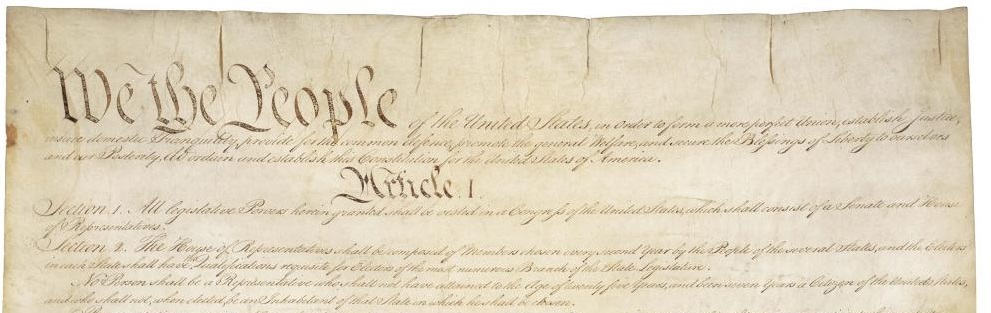 We the People of the United States, in Order to form a more perfect Union, establish Justice,
insure domestic Tranquility, provide for the common defence, promote the general Welfare, and secure the Blessings of Liberty to ourselves
and our Posterity, do ordain and establish this Constitution for the United States of America.
Article. I.
Section. 1. All legislative Powers herein granted shall be vested in a Congress of the United States, which shall consist of a Senate and House
of Representatives.
Section. 2. The House of Representatives shall be composed of Members chosen every second Year by the People of the several States, and the Electors
in each State shall have Qualifications requisite for Electors of the most numerous Branch of the State Legislature.
No Person shall be a Representative who shall not have attained to the Age of twenty five Years, and been seven Years a Citizen of the United States,
and who shall not, when elected, be an Inhabitant of that State in which he shall be chosen.